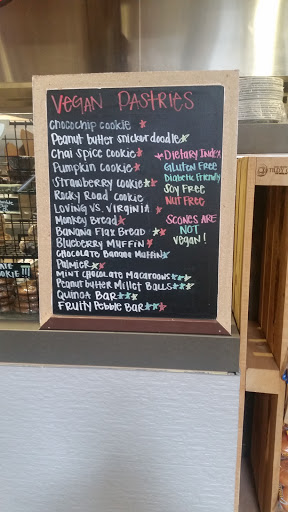 VEGAN PASTRIES
CHOCOCHIP COOKIE
PEANUT BUTTER SNICKERDOODLE
CHAI SPICE COOKIE
PUMPKIN COOKIE
STRAWBERRY COOKIE
ROCKY ROAD COOKIE
LOVING VS. VIRGINIA
MONKEY BREAD
BANANA FLAX BREAD
BLUEBERRY MUFFIN
CHOCOLATE BANANA MUFFIN
PALMIER
MINT CHOCOLATE MACAROONS
PEANUT BUTTER MILLET BALLS
QUINOA BAR
FRUITY PEBBLE BAR
DIETARY INDEX
GLUTEN FREE
DIABETIC FRIENDLY
SOY FREE
NUT FREE
SCONES ARE
NOT
VEGAN!